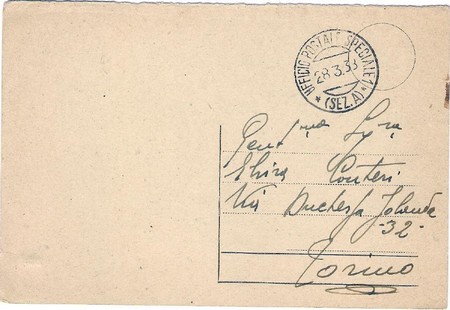 UFFICIO POSTALE SPECIALE 1
28.3.33
* (SEZ.A) *
Gent.ma Sig.ra
Elvira
Via Duchessa Jolanda
-32-
Torino